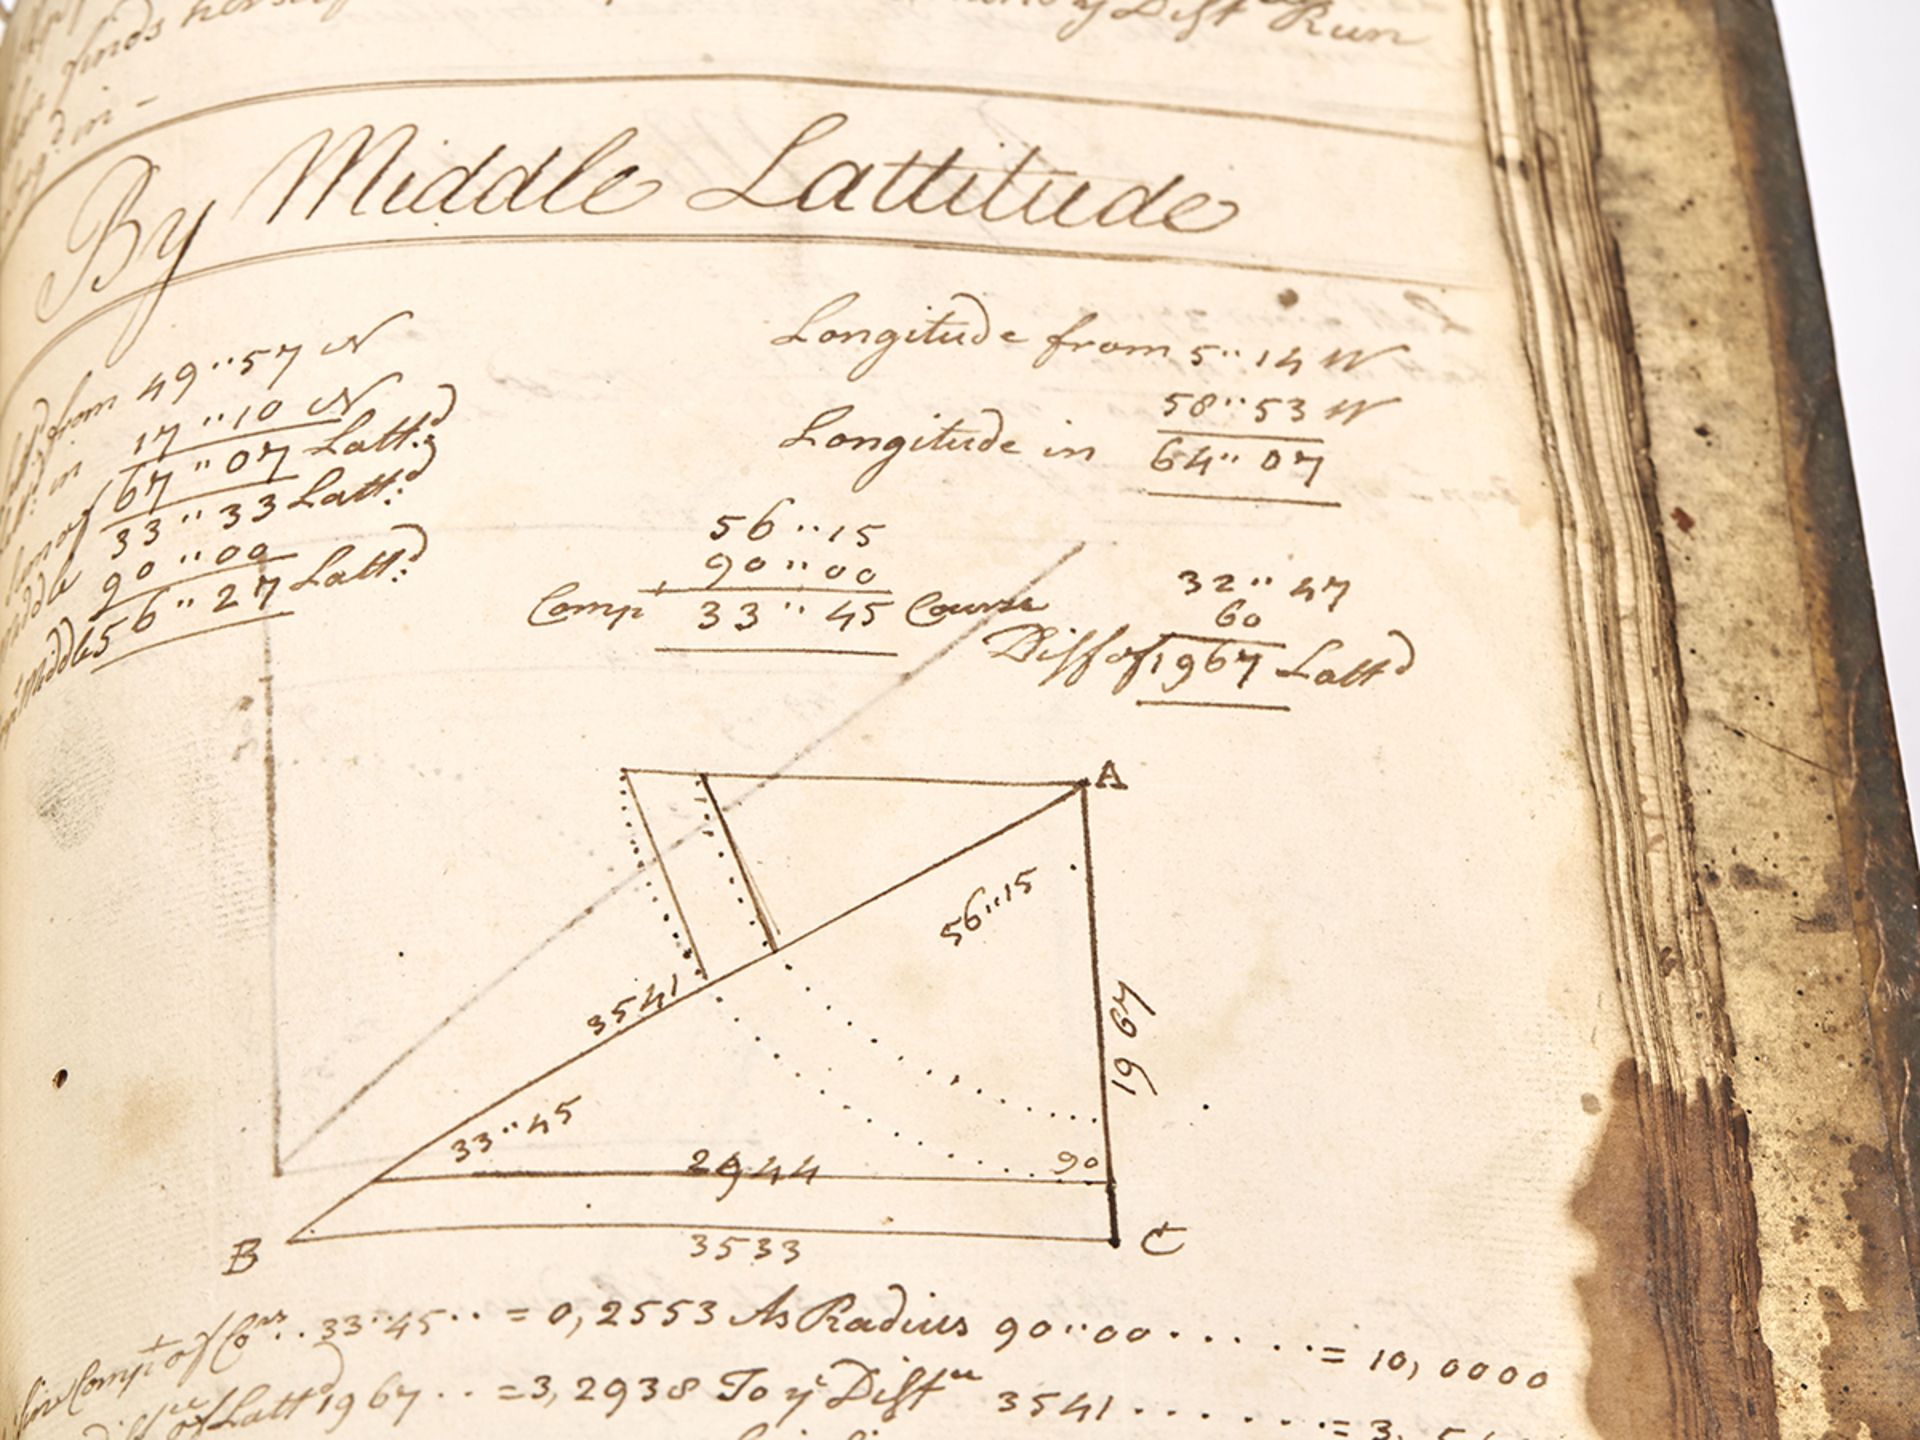 finds herself y Dist Run
By Middle Lattitude
from 49"57 N
in 17"10 N
67"07 Latt:d
Middle 33"33 Latt:d
90"00
Middle 56"27 Latt:d
Longitude from 5"14 W
58"53 W
Longitude in 64"07
56"15
90"00
Comp t 33"45 Course
32"47
60
Diff of 1967 Lattd
A
56"15
3541
1967
33"45
2944
90
B
3533
C
Sine Compt of Co.rs.. 33"45.. = 0,2553 As Radius 90"00...... = 10,0000
of Lattd 1967.. =3,2938 To ye Distce 3541....... = 3,5